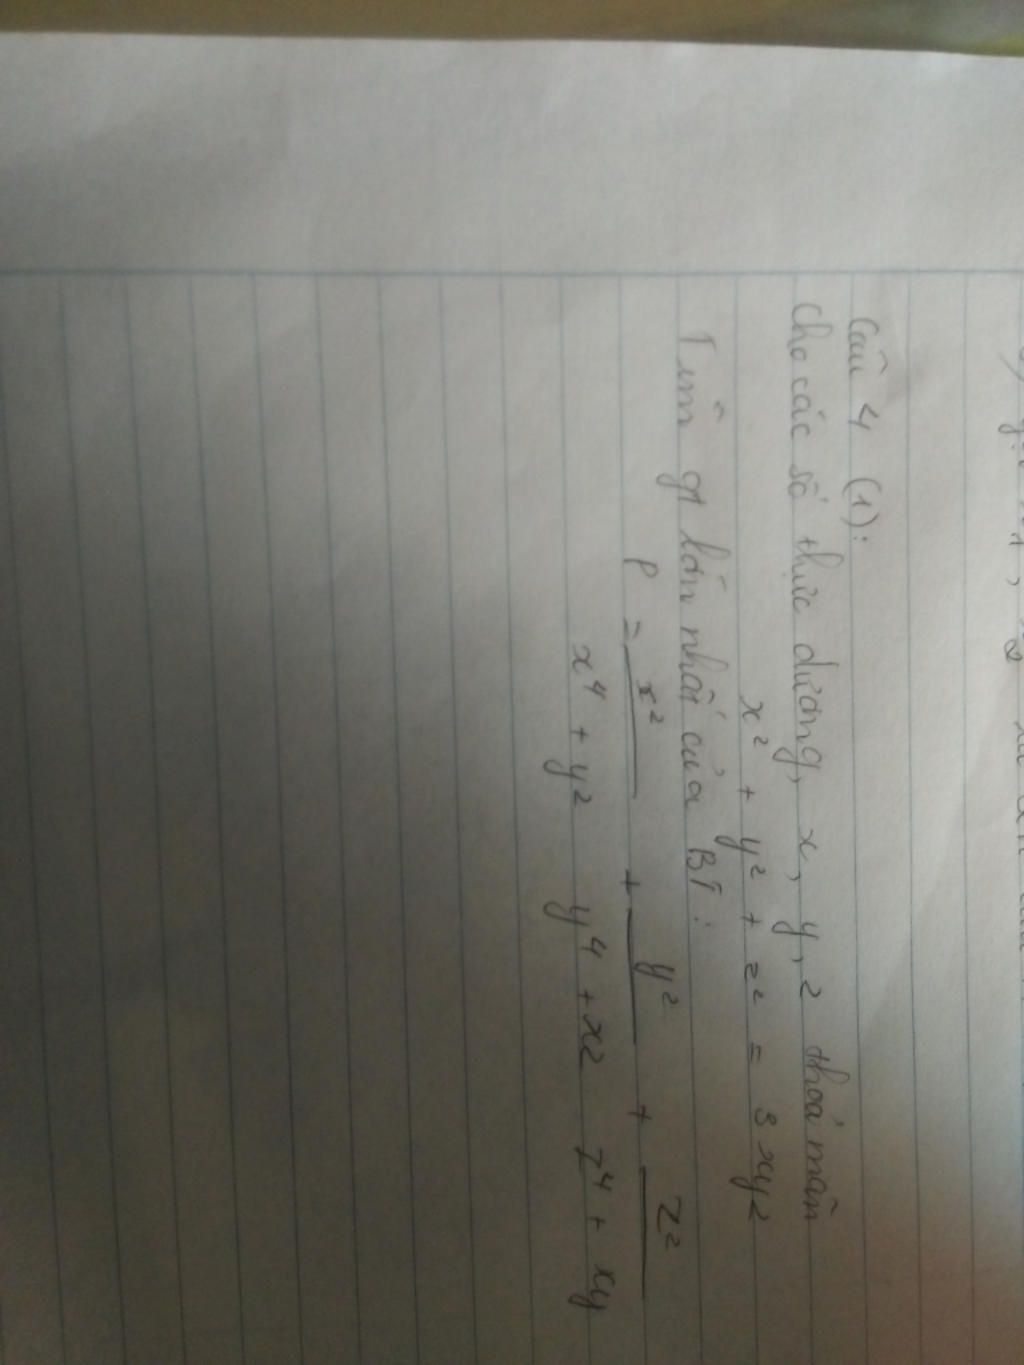 Câu 4 (1):
Cho các số thực dương, x, y, z thoả mãn
x² + y² + z² = 3xyz
Tìm gt lớn nhất của BT:
P = x²/(x⁴ + yz) + y²/(y⁴ + xz) + z²/(z⁴ + xy)